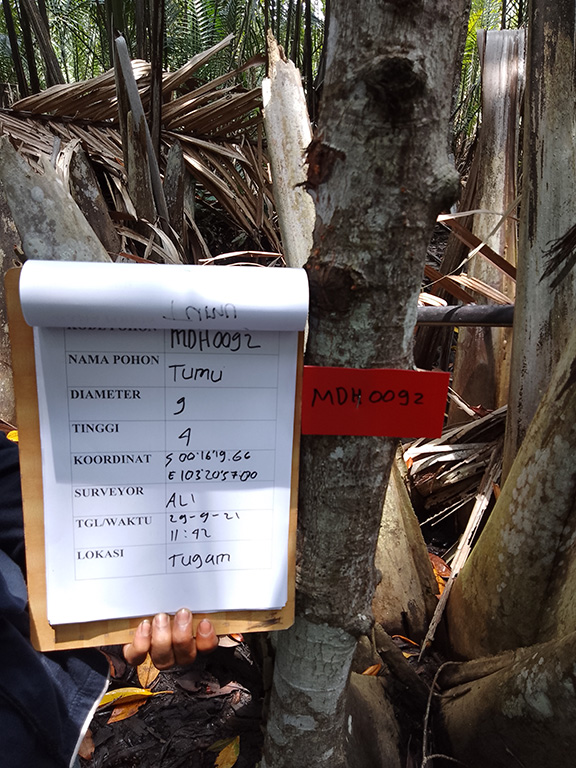 MDH0092
NAMA POHON Tumu
DIAMETER 9
TINGGI 4
KOORDINAT S 00°16'19.66
E 103°20'57.00
SURVEYOR ALI
TGL/WAKTU 29-9-21
11:42
LOKASI Tugam
MDH0092